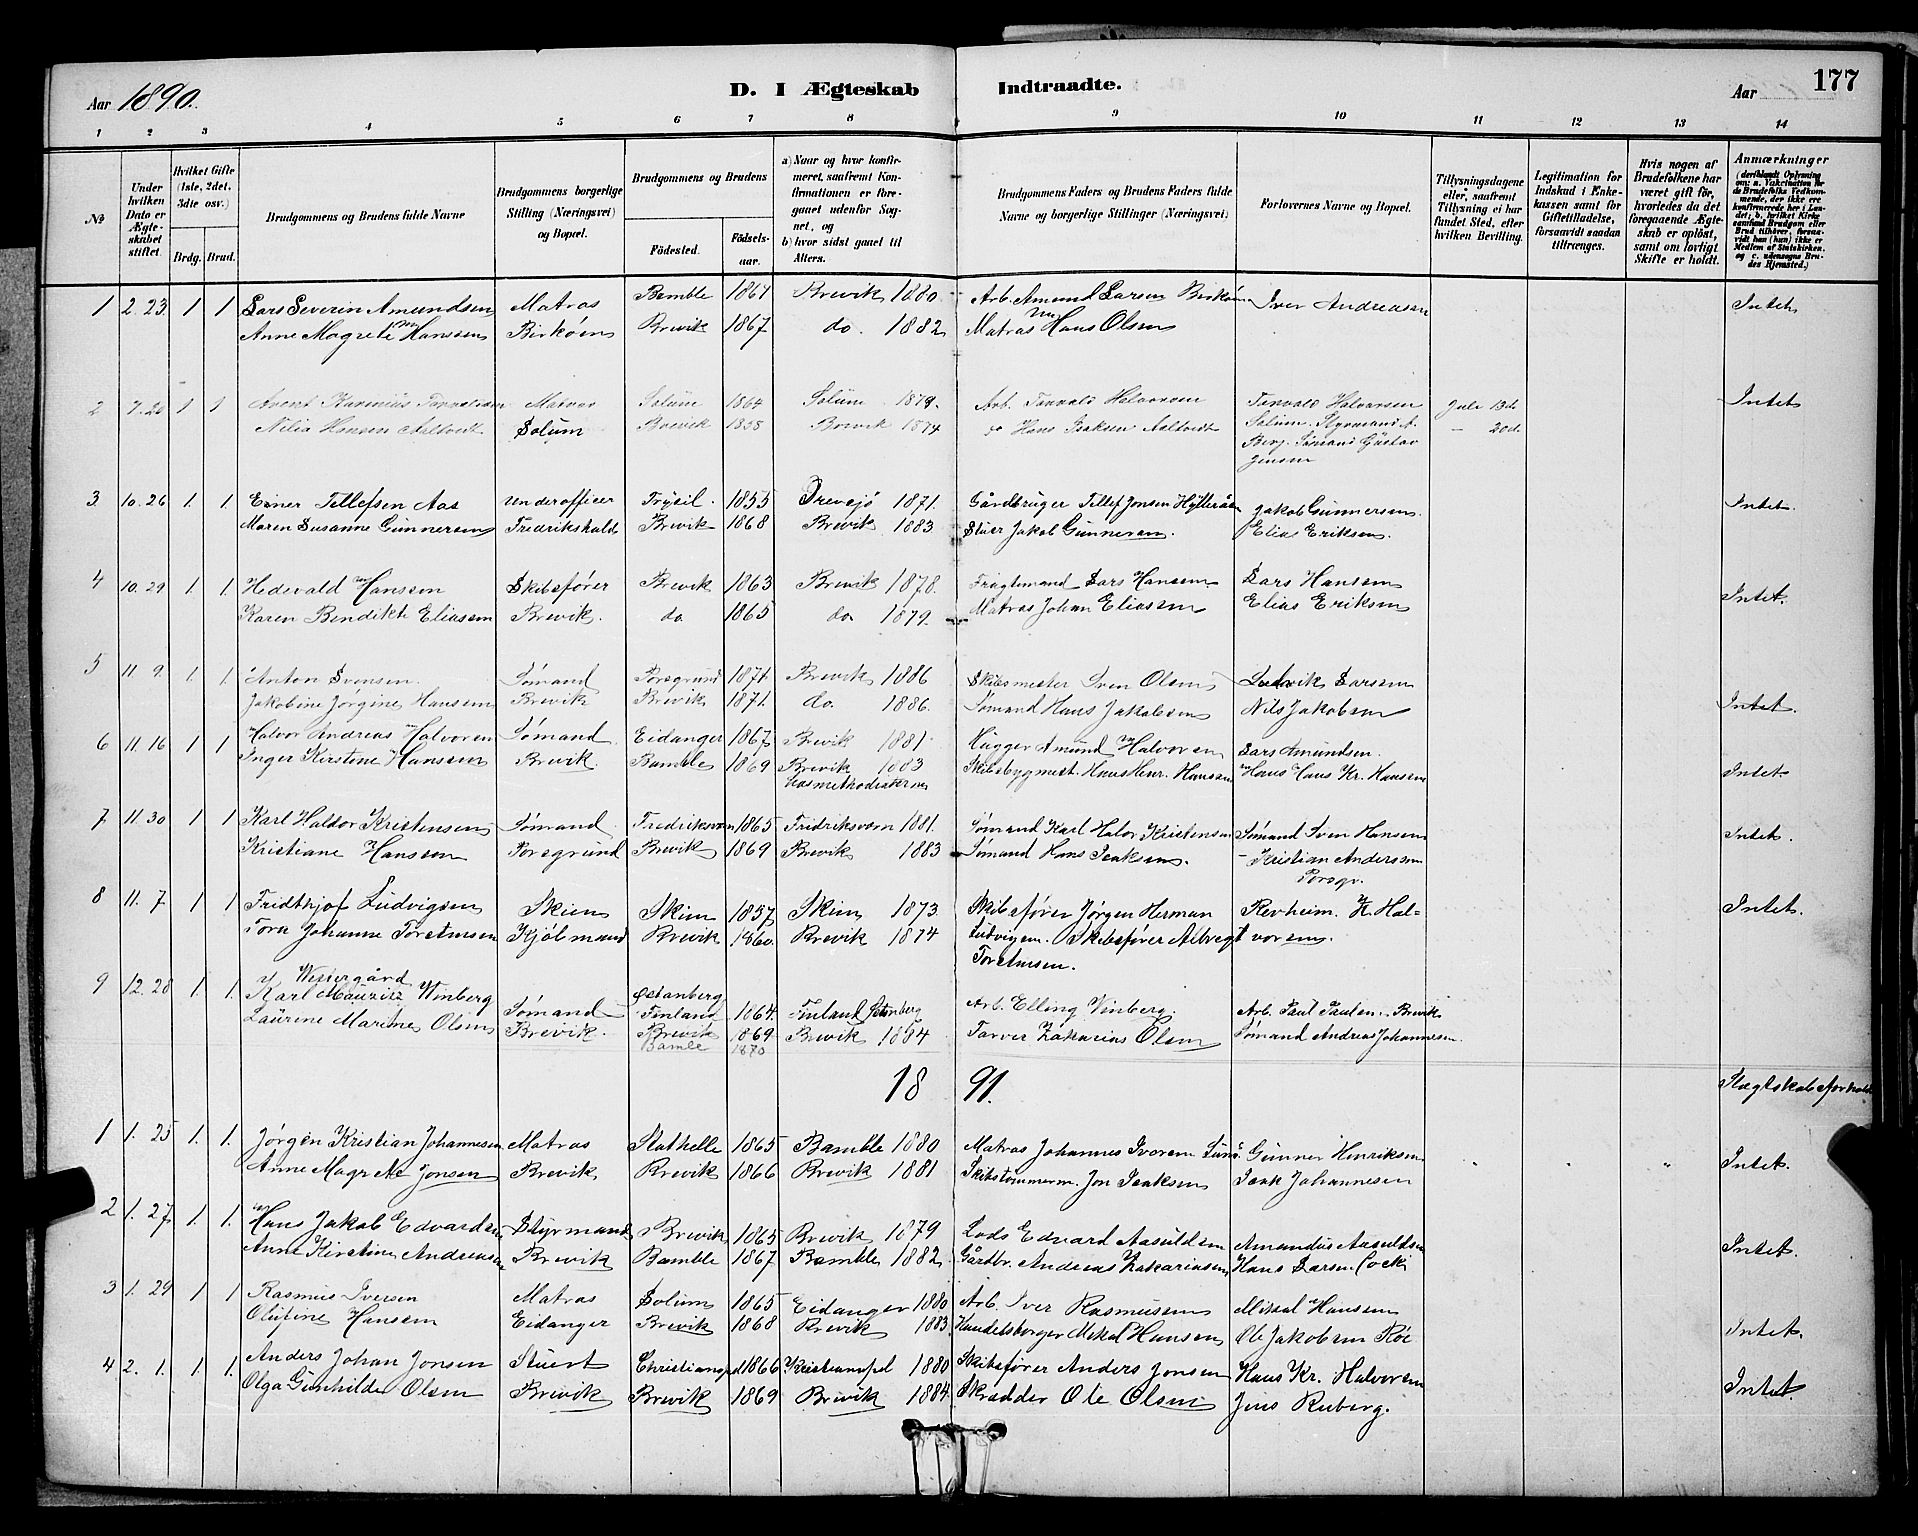 Aar 1890. D. I Ægteskab Indtraadte. Aar 177
1 2 3 4 5 6 7 8 9 10 11 12 13 14
No
Under hvilken Dato er Ægteskabet stiftet.
Hvilket Gifte (1ste, 2det, 3die osv.)
Brdg. Brud.
Brudgommens og Brudens fulde Navne
Brudgommens borgerlige Stilling (Næringsvei) og Bopæl.
Brudgommens og Brudens
Fødested. Fødsels-aar.
a) Naar og hvor konfirmeret, saafremt Konfirmationen er foregaaet udenfor Sognet, og
b) hvor sidst gaaet til Alters.
Brudgommens Faders og Brudens Faders fulde Navne og borgerlige Stillinger (Næringsvei)
Forlovernes Navne og Bopæl.
Tillysningsdagene eller, saafremt Tillysning ei har fundet Sted, efter hvilken Bevilling.
Legitimation for Indskud i Enkekassen samt for Giftetilladelse, forsaavidt saadan tiltrænges.
Hvis nogen af Brudefolkene har været gift før, hvorledes da det foregaaende Ægteskab er opløst, samt om lovligt Skifte er holdt.
Anmærkninger (deriblandt Oplysning om: a. Vakcination for de Brudefolks Vedkommende, der ikke ere konfirmerede her i Landet; b. hvilket Kirkesamfund Brudgom eller Brud tilhører, forsaavidt han (hun) ikke er Medlem af Statskirken, og c. udensogns Brudes Hjemsted.)
1 2. 23. 1 1 Lars Severin Amundsen Matros Bamble 1864 Brevik 1880. Arb. Amund Larsen Birkøen Iver Andreasen Intet
Anne Magrete Hanssen Birkøen Brevik 1867 do. 1882 Matros Hans Olsen
2 7. 20 1 1 Matros Solum 1864 Solum 1879. Arb. Torvald Halvorsen Torvald Halvorsen Juli 13de Intet
Nilia Hansen Aaltvedt Solum Brevik 1858 Brevik 1874 Hans Isaksen Aaltvedt Solum. Styrmand A. — 20d.
Berg. Sømand Gustav
Jensen
3 10. 26 1. 1. Einer Tellefsen Aas Underofficer Trysil. 1855 1871. Gårdbruger Tellef Jonsen Jakob Gunnersen. Intet.
Maren Susanne Gunnersen Fredrikshald Brevik 1868 Brevik 1883 Stuer Jakob Gunnersen. Elias Eriksen.
4 10. 29 1. 1. Hedevald Hanssen Skibsfører Brevik 1863 Brevik 1878. Fragtmand Lars Hansen Lars Hansen Intet.
Karen Bendikte Eliassen Brevik. do. 1865 do. 1879. Matros Johan Eliassen Elias Eriksen
5 11. 9. 1. 1. Anton Svensen. Sømand Porsgrund 1871 Brevik 1886 Skibsmester Sven Olsen Ludvik Larsen
Jakobine Jørgine Hansen Brevik Brevik 1871. do. 1886. Sømand Hans Jakobsen Nils Jakobsen Intet.
6 11. 16 1 1 Halvor Andreas Halvorsen Sømand Eidanger 1867 Brevik 1881. Hugger Amund Halvorsen Lars Amundsen.
Inger Kirstine Hanssen Brevik. Bamble 1869 Brevik 1883 Skibsbygmest. Hans Henr. Hansen Hans Kr. Hansen Intet.
hos methodisterne
7 11. 30 1 1 Karl Haldor Kristensen Sømand Fredriksvern 1865 Fridriksvern 1881. Sømand Karl Halor Kristensen Sømand Sven Hansen Intet.
Kristiane Hanssen Porsgrund Brevik 1869 Brevik 1883 Sømand Hans Isaksen. — Kristian Anderssen
Porsgr.
8 11. 7. 1 1 Fridthjof Ludvigsen Skien Skien 1857 Skien 1873. Skibsfører Jørgen Herman Revheim. K. Hal= Intet.
Tora Johanne Torstensen Kjøbmand Brevik 1860. Brevik 1874 Ludvigsen. Skibsfører Albregt vorsen.
Torstensen.
9 12. 28 1. 1. Westergård
Karl Mauritz Winberg Sømand Østanberg Finland 1864. Finland Arb. Elling Vinberg. Arb. Paul Paulsen. Brevik
Laurine Marine Olsen Brevik. Brevik 1869 Brevik 1884 Farver Zakarias Olsen Sømand Andreas Johannesen.
Bamle 1870
18 91.
Slægtskabsforhold
1 1. 25 1. 1. Jørgen Kristian Johannesen Matros Stathelle 1865 Bamble 1880 Matros Johannes Gunner Henriksen " " " Intet.
Anne Magrete Jonsen Brevik Brevik 1866 Brevik 1881 Skibstømmerm. Jon Isaksen Isak Johannesen
2 1. 27 1. 1. Hans Jakob Edvardsen Styrmand Brevik 1865 Brevik 1879 Lods Edvard Aasuldsen Amandus Aasuldsen
Anne Kirstine Andreasen Brevik Bamble 1867 Bamble 1882. Gårdbr. Andreas Zakariasen Hans Larsen Cock Intet.
3 1. 29 1 1 Rasmus Iversen Matros Solum 1865 Eidanger 1880. Arb. Iver Rasmussen Mikal Hansen
Olufine Hansen Eidanger Brevik 1868 Brevik 1883. Handelsborger Mikal Hansen Ole Jakobsen Intet.
4 2. 1. 1. 1. Anders Johan Jonsen Stuert Christianspd 1866 Kristianspl 1880 Skibsfører Anders Jonsen Hans Kr. Halvorsen
Olga Gunhilde Olsen Brevik Brevik 1869 Brevik 1884. Skrædder Ole Olsen Jens Ruberg. Intet